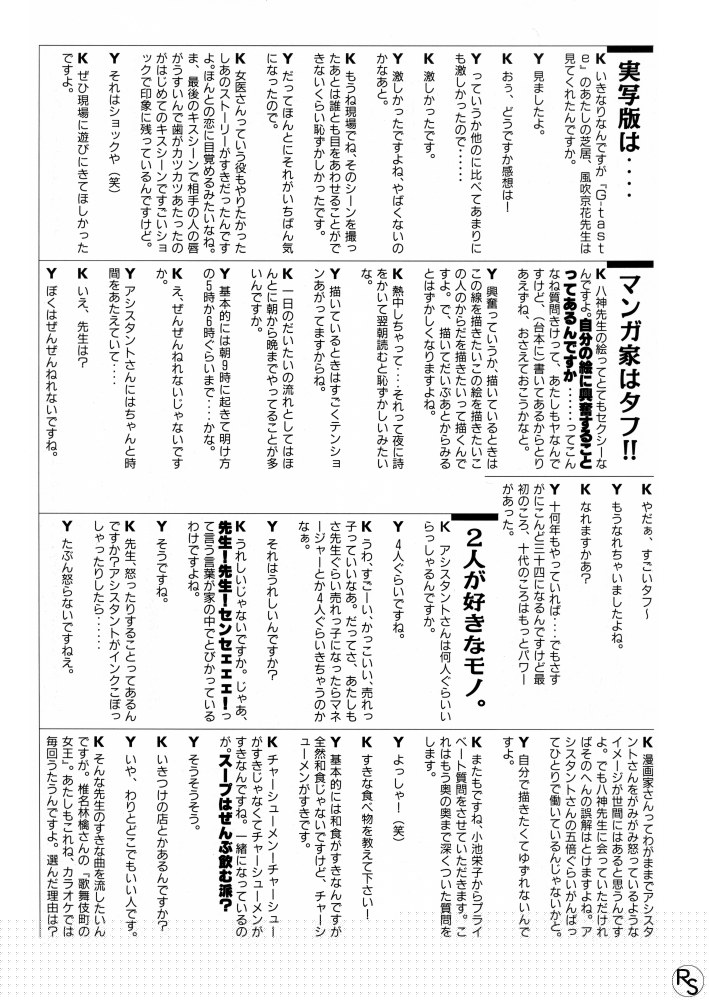 実写版は‥‥
K いきなりなんですが『G-tast
e』のあたしの芝居、風吹京花先生は
見てくれたんですか。
Y 見ましたよ。
K おぅ、どうですか感想は！
Y っていうか他のに比べてあまりに
も激しかったので‥‥‥
K 激しかったです。
Y 激しかったですよね、やばくないの
かなあと。
K もうね現場でね、そのシーンを撮っ
たあとは誰とも目をあわせることがで
きないくらい恥ずかしかったです。
Y だってほんとにそれがいちばん気
になったので。
K 女医さんっていう役もやりたかった
しあのストーリーがすきだったんです
よ。ほんとの恋に目覚めるみたいなね。
ま、最後のキスシーンで相手の人の唇
がうすいんで歯がカツカツあたったの
がはじめてのキスシーンですごいショ
ックで印象に残っているんですけど。
Y それはショックや（笑）
K ぜひ現場に遊びにきてほしかった
ですよ。
マンガ家はタフ!!
K 八神先生の絵ってとてもセクシーな
んですよ。自分の絵に興奮すること
ってあるんですか‥‥‥ってこん
なね質問きけって、あたしもヤなんで
すけど、（台本に）書いてあるからとり
あえずね、おさえておこうかなと。
Y 興奮っていうか、描いているときは
この線を描きたいこの絵を描きたいこ
の人のからだを描きたいって描くんで
すよ。で、描いてだいぶあとからみる
とはずかしくなりますよね。
K 熱中しちゃって‥‥それって夜に詩
をかいて翌朝読むと恥ずかしいみたい
な。
Y 描いているときはすごくテンショ
ンあがってますからね。
K 一日のだいたいの流れとしてはほ
んとに朝から晩までやってることが多
いんですか。
Y 基本的には朝9時に起きて明け方
の5時か6時ぐらいまで‥‥かな。
K え、ぜんぜんねれないじゃないです
か。
Y アシスタントさんにはちゃんと時
間をあたえていて‥‥
K いえ、先生は？
Y ぼくはぜんぜんねれないですね。
K やだぁ、すごいタフ〜
Y もうなれちゃいましたよね。
K なれますかあ？
Y 十何年もやっていれば‥‥でもさす
がにこんど三十四になるんですけど最
初のころ、十代のころはもっとパワー
があった。
2人が好きなモノ。
K アシスタントさんは何人ぐらいい
らっしゃるんですか。
Y 4人ぐらいですね。
K うわ、すごーい、かっこいい、売れっ
子っていいなあ。だってさ、あたしも
さ先生ぐらい売れっ子になったらマネ
ージャーとか4人ぐらいきちゃうのか
なぁ。
Y それはうれしいんですか？
K うれしいじゃないですか。じゃあ、
先生！先生ーセンセェェェ！っ
て言う言葉が家の中でとびかっている
わけですよね。
Y そうですね。
K 先生、怒ったりすることってあるん
ですか？アシスタントがインクこぼっ
しゃったりしたら‥‥‥
Y たぶん怒らないですねえ。
K 漫画家さんってわがままでアシスタ
ントさんをがみがみ怒っているような
イメージが世間にはあると思うんです
よ。でも八神先生に会っていただけれ
ばそのへんの誤解はとけますよね。ア
シスタントさんの五倍ぐらいがんばっ
てひとりで働いているんじゃないかと。
Y 自分で描きたくてゆずれないんで
すよ。
K またもですね、小池栄子からプライ
ベート質問をさせていただきます。こ
れはもう奥の奥まで深くついた質問を
します。
Y よっしゃ！（笑）
K すきな食べ物を教えて下さい！
Y 基本的には和食がすきなんですが
全然和食じゃないですけど、チャーシ
ューメンがすきです。
K チャーシューメンーチャーシュー
がすきじゃなくてチャーシューメンが
すきなんですね。一緒になっているの
が。スープはぜんぶ飲む派？
Y そうそうそう。
K いきつけの店とかあるんですか？
Y いや、わりとどこでもいい人です。
K そんな先生のすきな曲を流したいん
ですが。椎名林檎さんの『歌舞伎町の
女王』。あたしもこれね、カラオケでは
毎回うたうんですよ。選んだ理由は？
RS